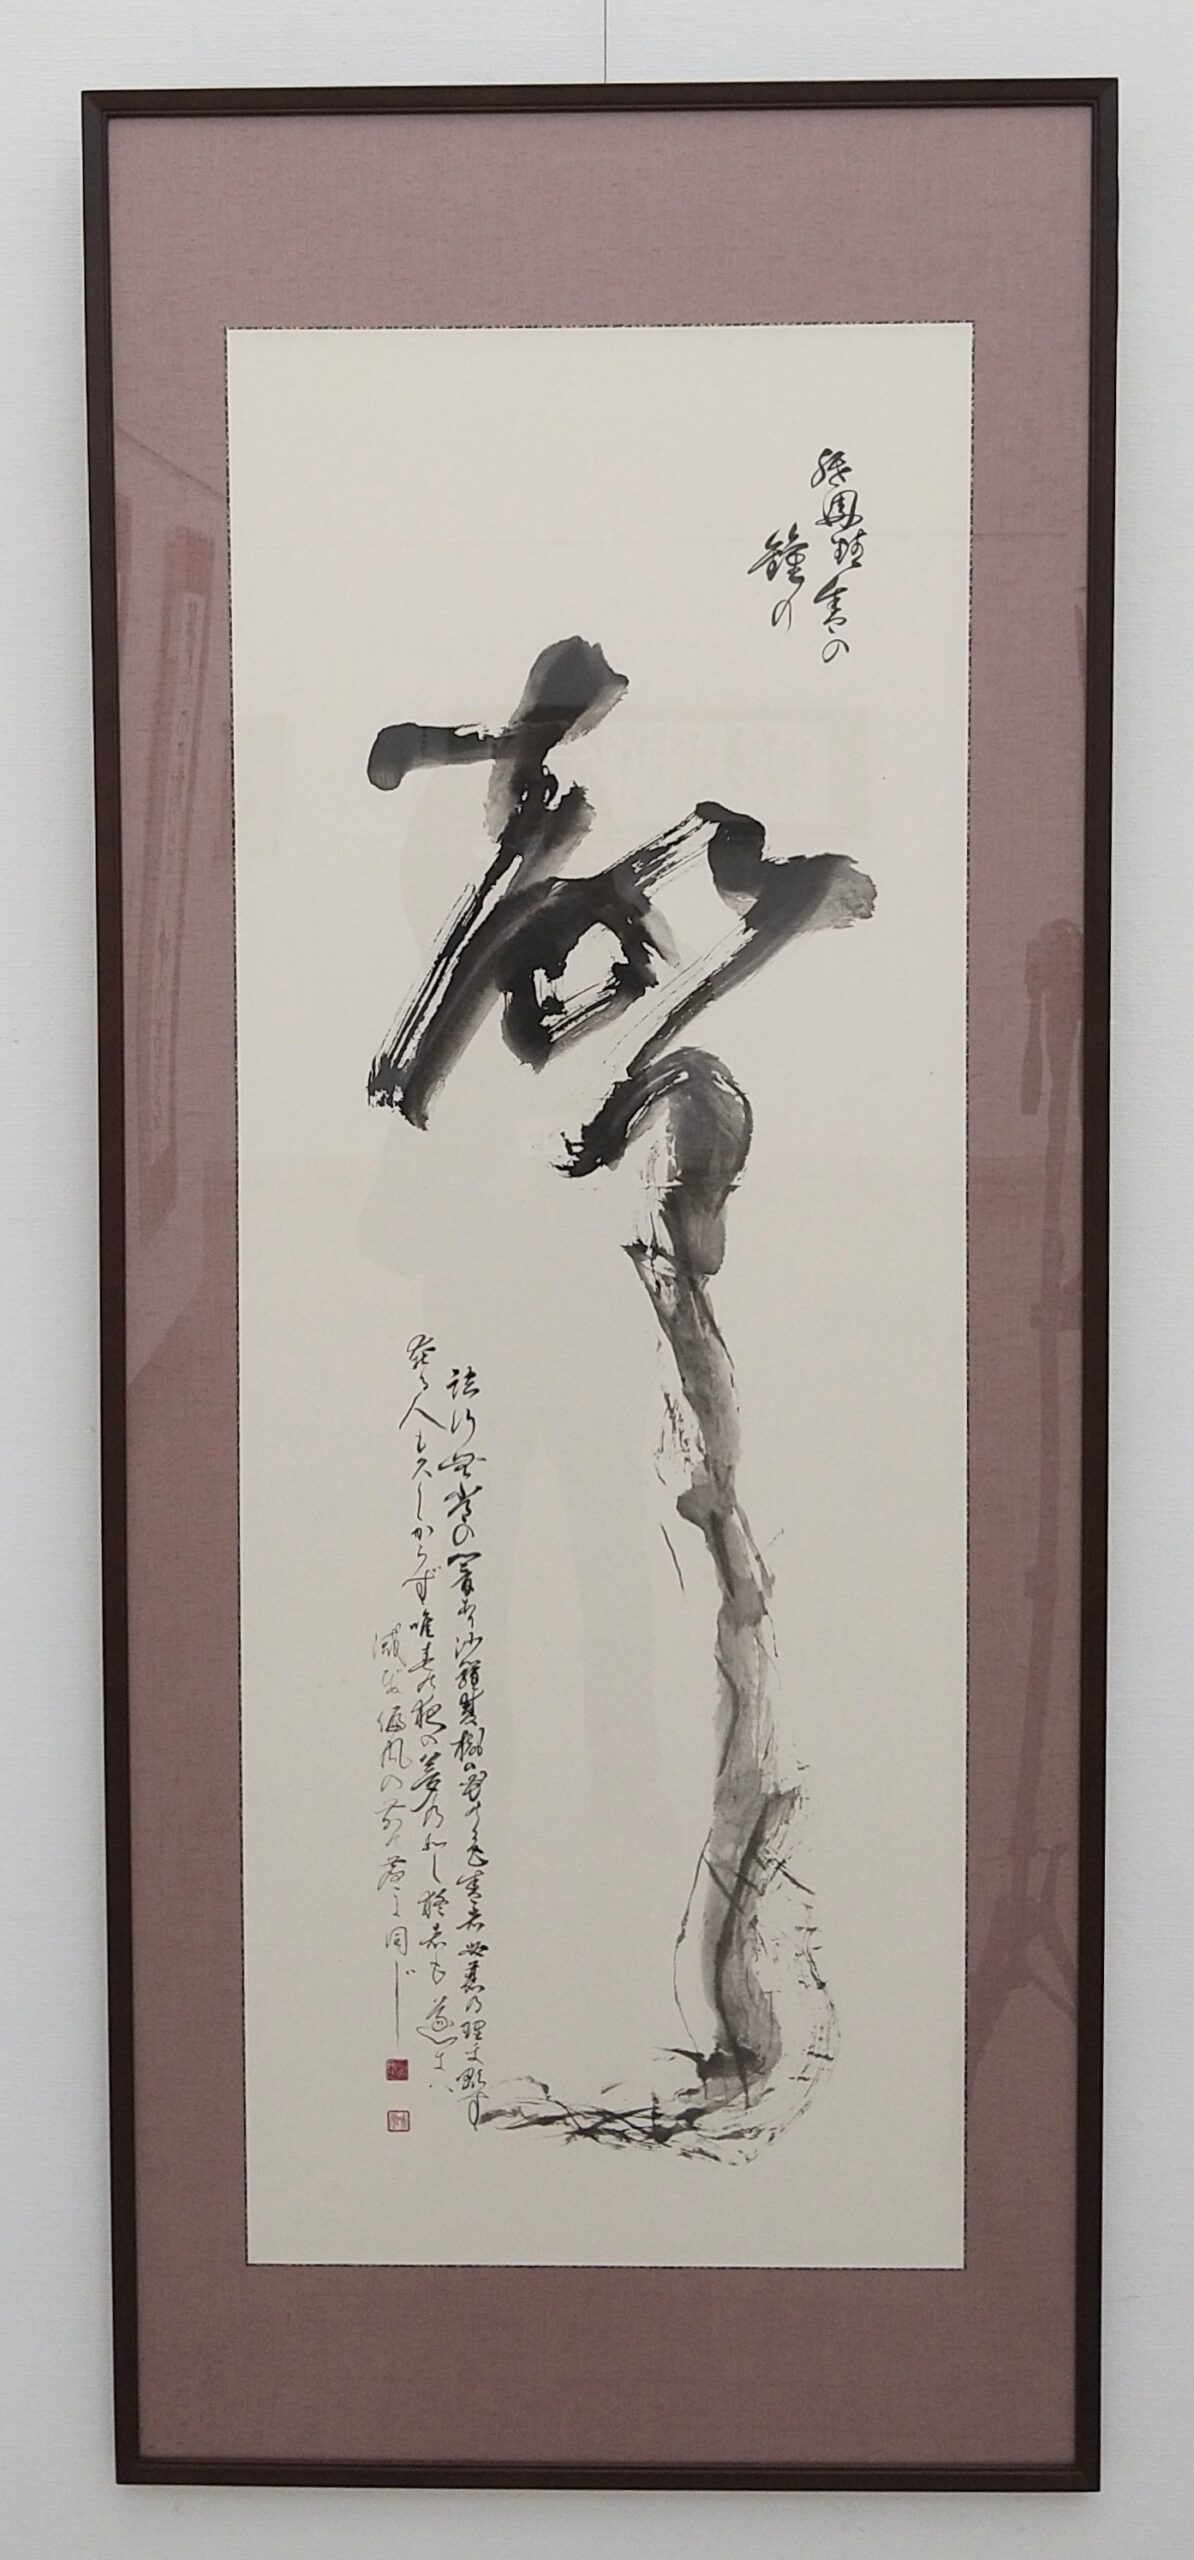 祇園精舎の
鐘の
声
諸行無常の響有沙羅雙樹の花の色盛者必衰の理を顕す
奢る人も久しからず唯春の夜の夢の如し猛者も遂には
滅ぬ偏風の前の塵に同じ